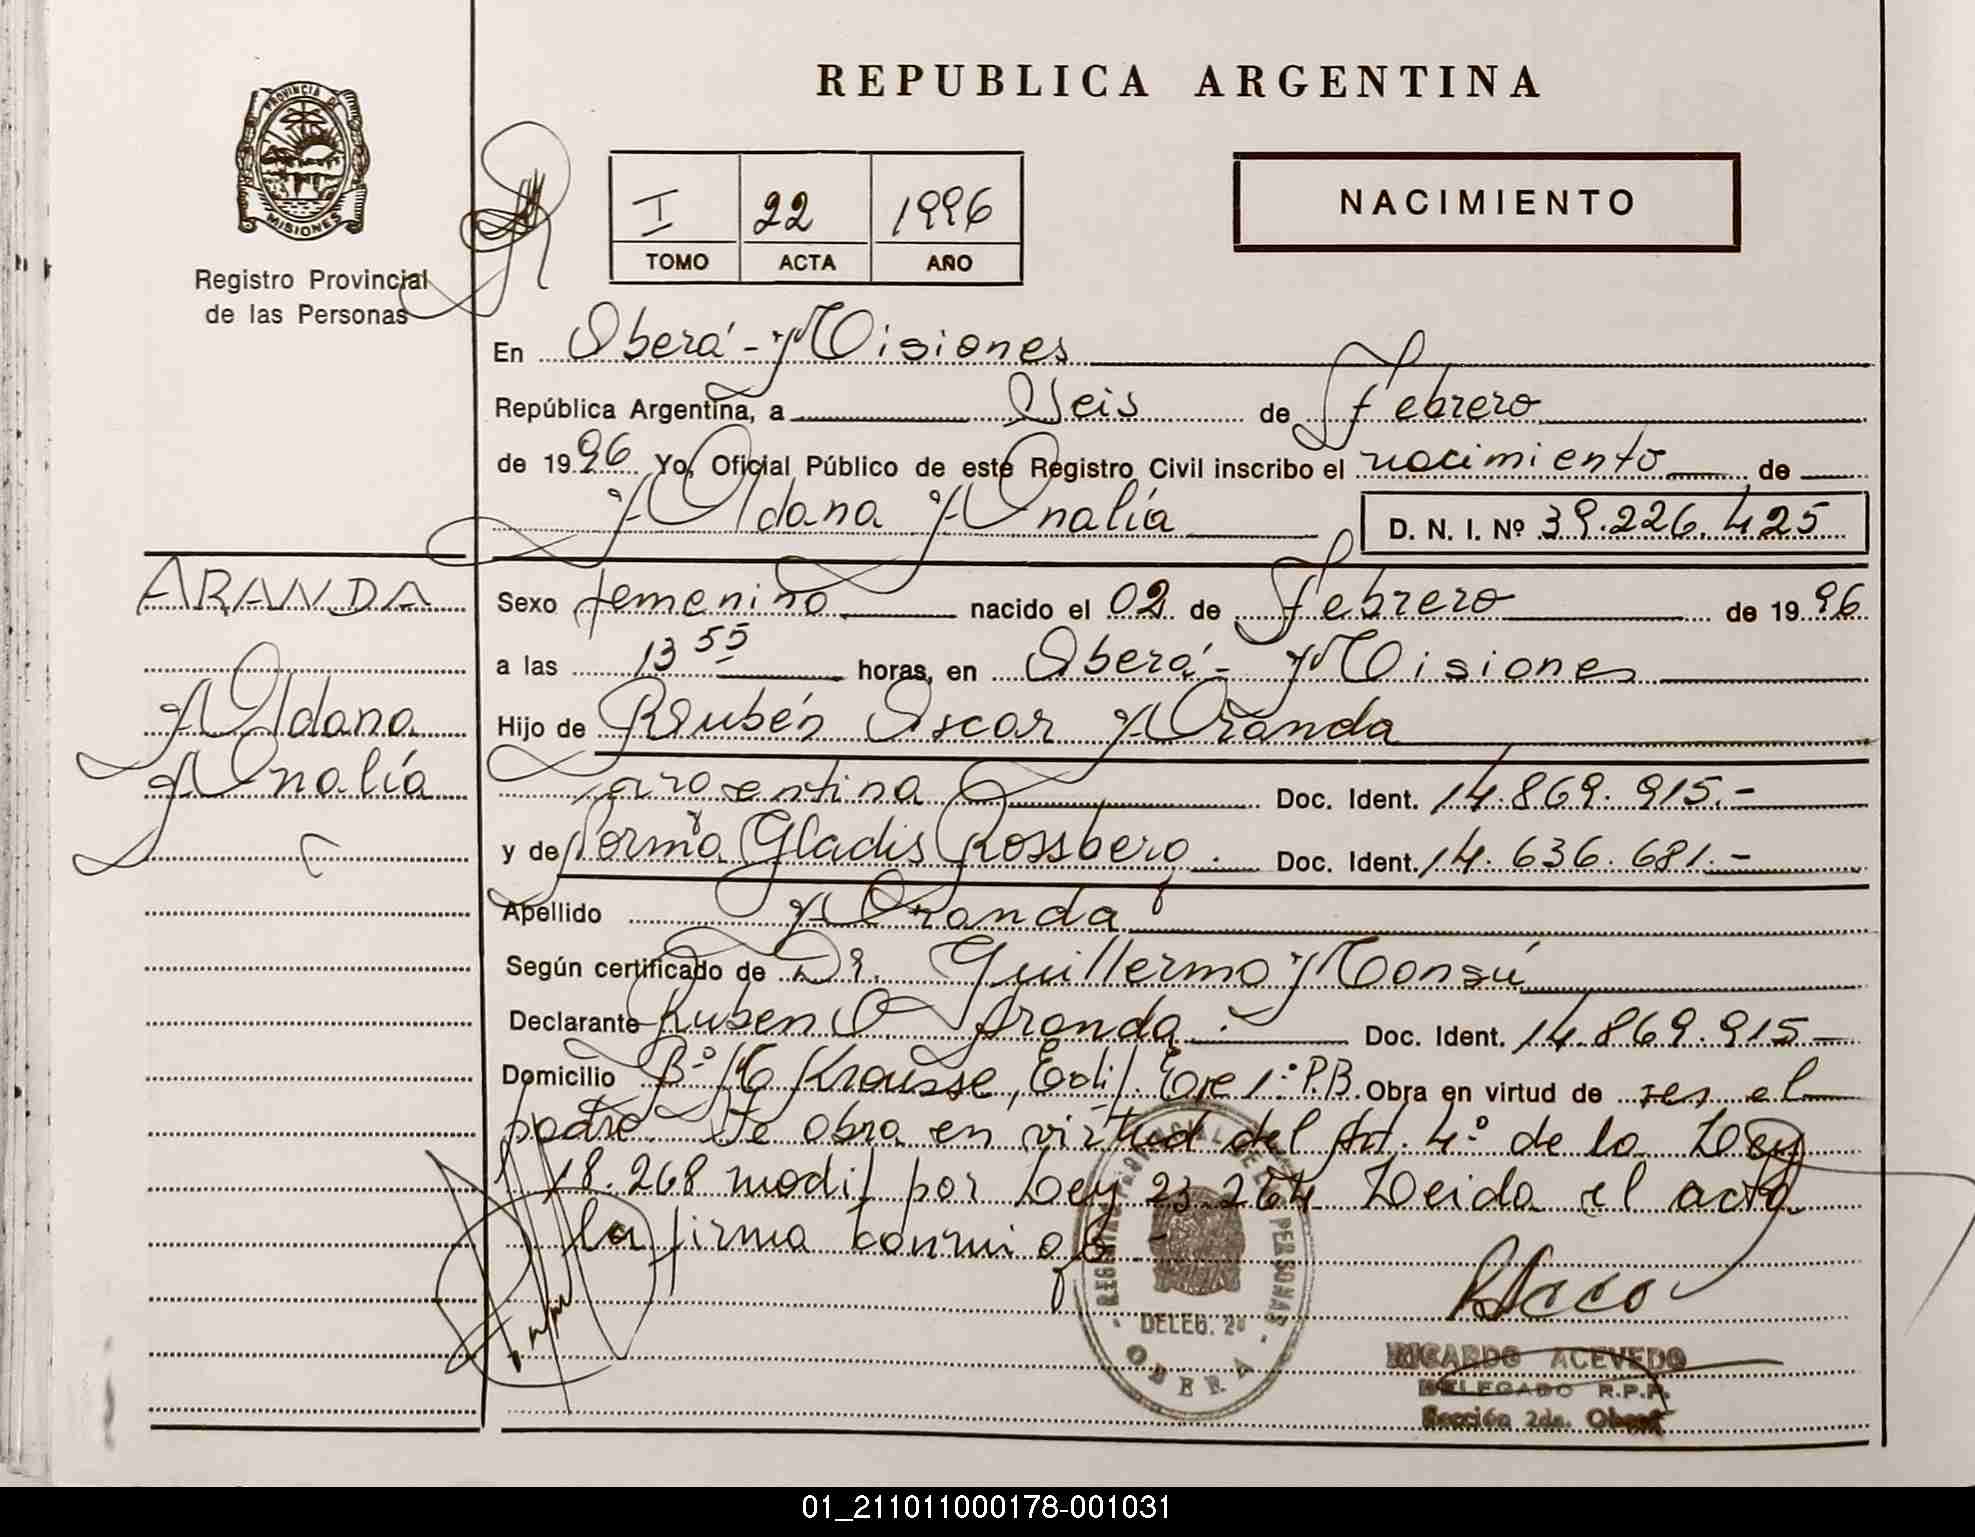 REPUBLICA ARGENTINA
PROVINCIA DE
MISIONES
Registro Provincial
de las Personas
I 22 1996
TOMO ACTA AÑO
NACIMIENTO
En Oberá - Misiones
República Argentina, a Seis de Febrero
de 1996 Yo, Oficial Público de este Registro Civil inscribo el nacimiento de
Aldana Analía D. N. I. Nº 39.226.425
ARANDA
Aldana
Analía
Sexo femenino nacido el 02 de Febrero de 1996
a las 13 55 horas, en Oberá - Misiones
Hijo de Rubén Oscar Aranda
argentina Doc. Ident. 14.869.915.-
y de Norma Gladis Rossberg. Doc. Ident. 14.636.681.-
Apellido Aranda
Según certificado de Dr. Guillermo Monsú
Declarante Ruben O Aranda. Doc. Ident. 14.869.915-
Domicilio Bº Krausse, Edif. 1º P.B. Obra en virtud de ser el
padre. Se obra en virtud del Art. 4º de la Ley
18.268 modif por Ley 23.264 Leida el acta
la firma conmigo.-
REGISTRO PROVINCIAL DE LAS PERSONAS
DELEG. 2ª
OBERA
RICARDO ACEVEDO
DELEGADO R.P.P.
Sección 2da. Oberá
01_211011000178-001031